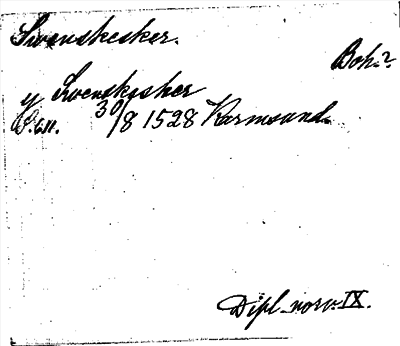 Svenskesker.
Boh.?
y Svenskesker
S. 611. 30/8 1528 Karmsund.
Dipl. norv. IX.